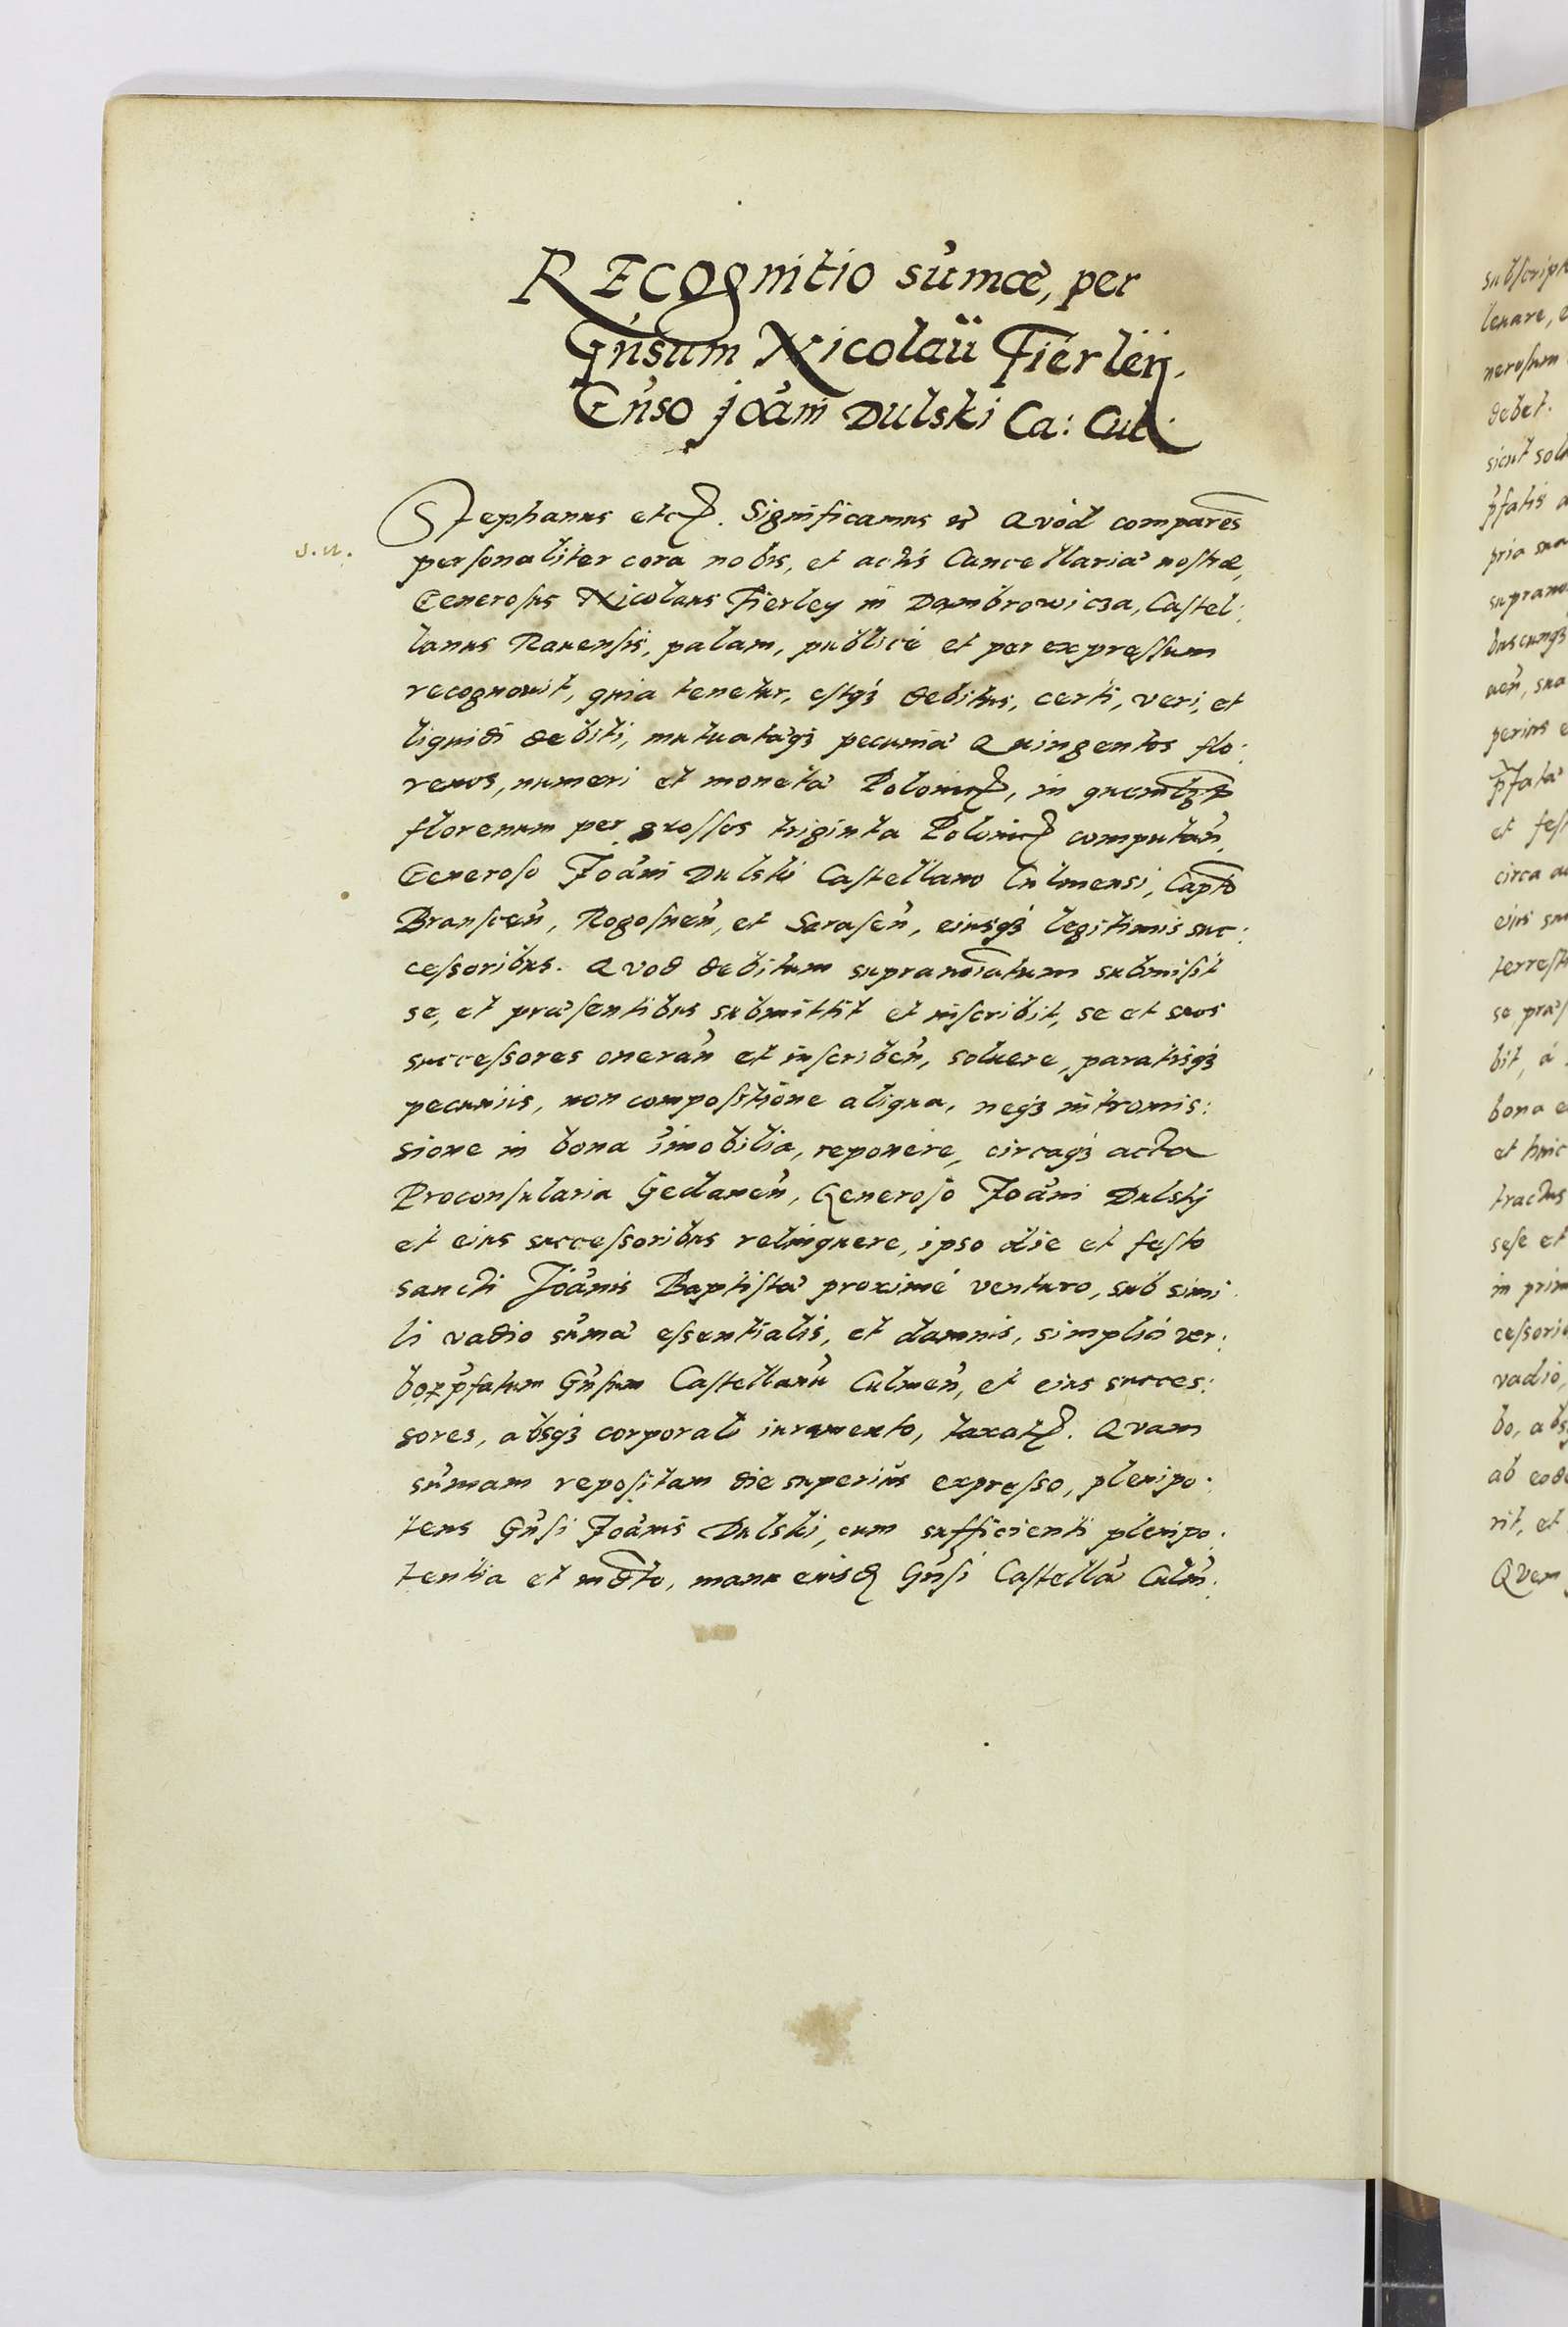 RECOgnitio sum̃æ, per
Gñsum Nicolaũ Fierleÿ.
Gñso Joãni Dulski Ca: Cul.
Stephanus etc. Significamus etc Quod comparẽs
J. N.
personaliter corã nobis, et actis Cancellariæ nostræ,
Generosus Nicolaus Fierley in Dambrowicza, Castel:
lanus Rauensis, palam, publicè et per expressum
recognouit, quia tenetur, estq3 debitus, certi, veri, et
liquidi debiti, mutuatæq3 pecuniæ Quingentos flo:
renos, numeri et monetæ Polonic, in
florenum per grossos triginta Polonic computañ,
Generoso Joãni Dulski Castellano Culmensi, Capto
Branscen̄, Rogosnen̄, et Surasen̄, eiusq3 legitimis suc:
cessoribus. Quod debitum supranoiatum submisit
se, et præsentibus submittit et inscribit, se et suos
successores oneran̄ et inscriben̄, soluere, paratisq3
pecuniis, non compositione aliqua, neq3 intromis:
sione in bona im̃obilia, reponere, circaq3 acta
Proconsularia Gedanen̄, Generoso Joãni Dulskj
et eius successoribus relinquere, ipso die et festo
sancti Joãnis Baptistæ proximè venturo, sub simi
li vadio sum̃æ essentialis, et damnis, simplici ver:
boꝝ p̃fatum Gñsum Castellanũ Culmen̄, et eius succes:
sores, absq3 corporali iuramento, taxat. Quam
sum̃am repositam die superiùs expresso, plenipo:
tens Gñsi Joãnis Dulski, cum sufficienti plenipo:
tentia et mdto, manu eiusd Gñsi Castellã Culm̃:
subscript
leuare, e
nerosum
debet.
sicut solu
p̃fatis a
pria sua
supranoi
buscunq3
uen̄, sua
perius e
p̃fatæ
et fes
circa a
eius su
terrest
se præs
bit, à
bona e
et huic
tractus
sese et
in prim
cessorib
vadio,
bo, abs
ab eode
rit, et
Quem